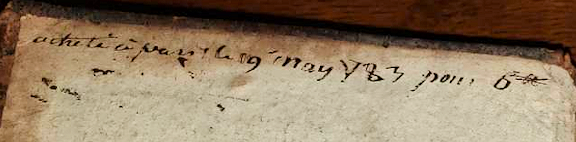 acheté à paris le 9 may 1783 pour 6 ₶